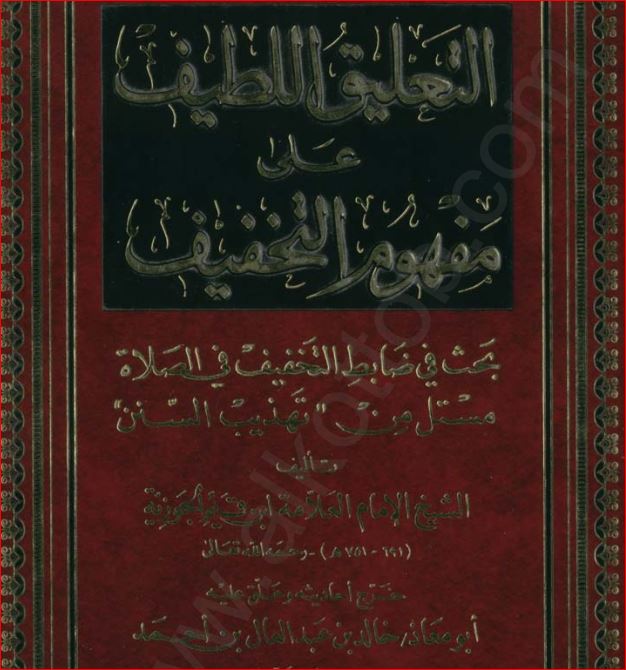 التعليق اللطيف
على
مفهوم التخفيف
بحث في ضابط التخفيف في الصلاة
مستل من "تهذيب السنن"
تأليف
الشيخ الإمام العلامة ابن قيم الجوزية
(٦٩١ - ٧٥١ هـ) - رحمه الله تعالى
خرج أحاديثه وعلق عليه
أبو معاذ / خالد بن عبد العال بن أحمد
www.alkottob.com